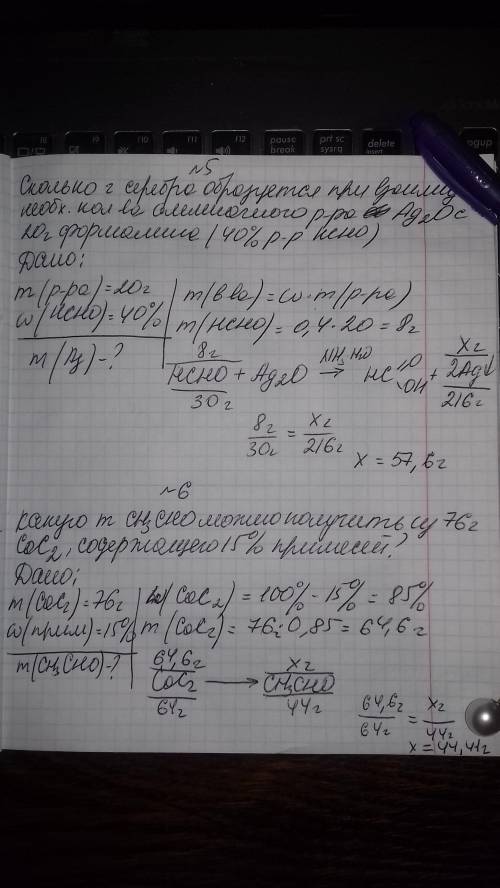 F8 F9 F10 F11 F12 pause break prt sc sysrq delete insert pgup
№5
Сколько г серебра образуется при взаимод
необх. кол ва аммиачного р-ра Ag2O с
20г формалина (40% р-р HCHO)
Дано:
m(р-ра)=20г
ω(HCHO)=40%
m(Ag)-?
m(в ва)=ω·m(р-ра)
m(HCHO)=0,4·20=8г
8г NH3, H2O xг
HCHO + Ag2O → HC=O OH + 2Ag↓
30г 216г
8г/30г = xг/216г
x=57,6г
№6
какую m CH3CHO можно получить из 76г
CaC2, содержащего 15% примесей?
Дано:
m(CaC2)=76г
ω(прим)=15%
m(CH3CHO)-?
ω(CaC2)=100%-15%=85%
m(CaC2)=76·0,85=64,6г
64,6г xг
CaC2 → CH3CHO
64г 44г
64,6г/64г = xг/44г
x=44,41г